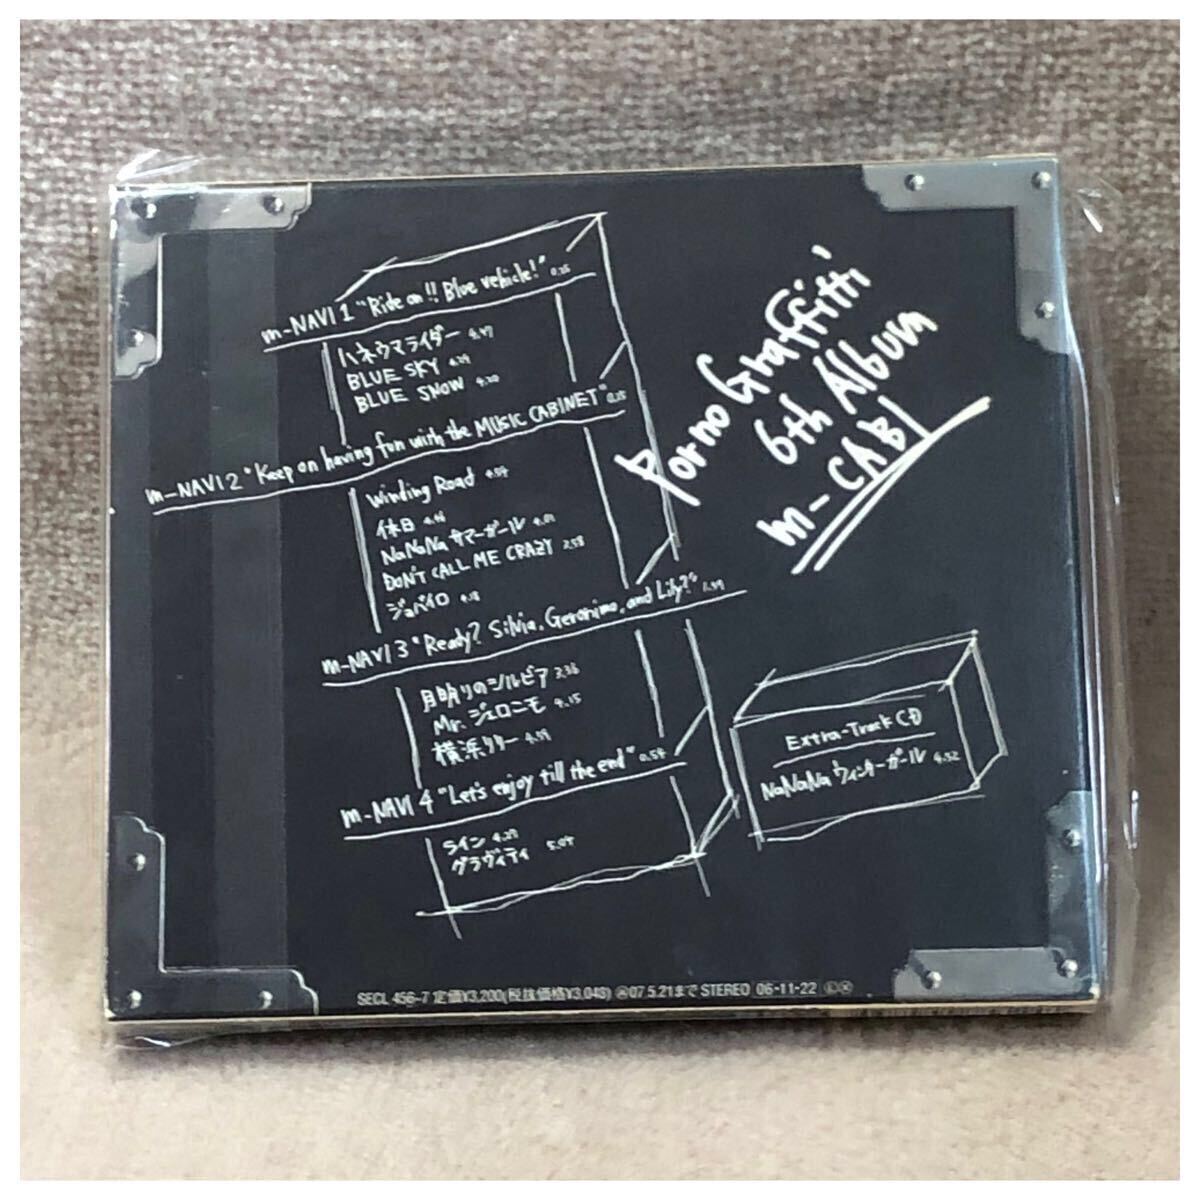 m-NAVI 1 "Ride on!! Blue vehicle!" 0:26
ハネウマライダー 4:47
BLUE SKY 4:29
BLUE SNOW 4:20
m-NAVI 2 "Keep on having fun with the MUSIC CABINET" 0:25
Winding Road 4:54
休日 4:46
NaNaNa サマーガール 4:01
DON'T CALL ME CRAZY 3:58
ジョバイロ 4:18
m-NAVI 3 "Ready? Silvia, Geronimo, and Lily?"
月明りのシルビア 3:36
Mr. ジェロニモ 4:15
横浜リリー 4:59
m-NAVI 4 "Let's enjoy till the end" 0:54
ライン 4:29
グラヴィティ 5:04
Porno Graffitti
6th Album
m-CABI
Extra-Track CD
NaNaNa ウィンターガール 4:52
SECL 456-7 定価¥3,200(税抜価格¥3,048) 07.5.21まで STEREO 06・11・22